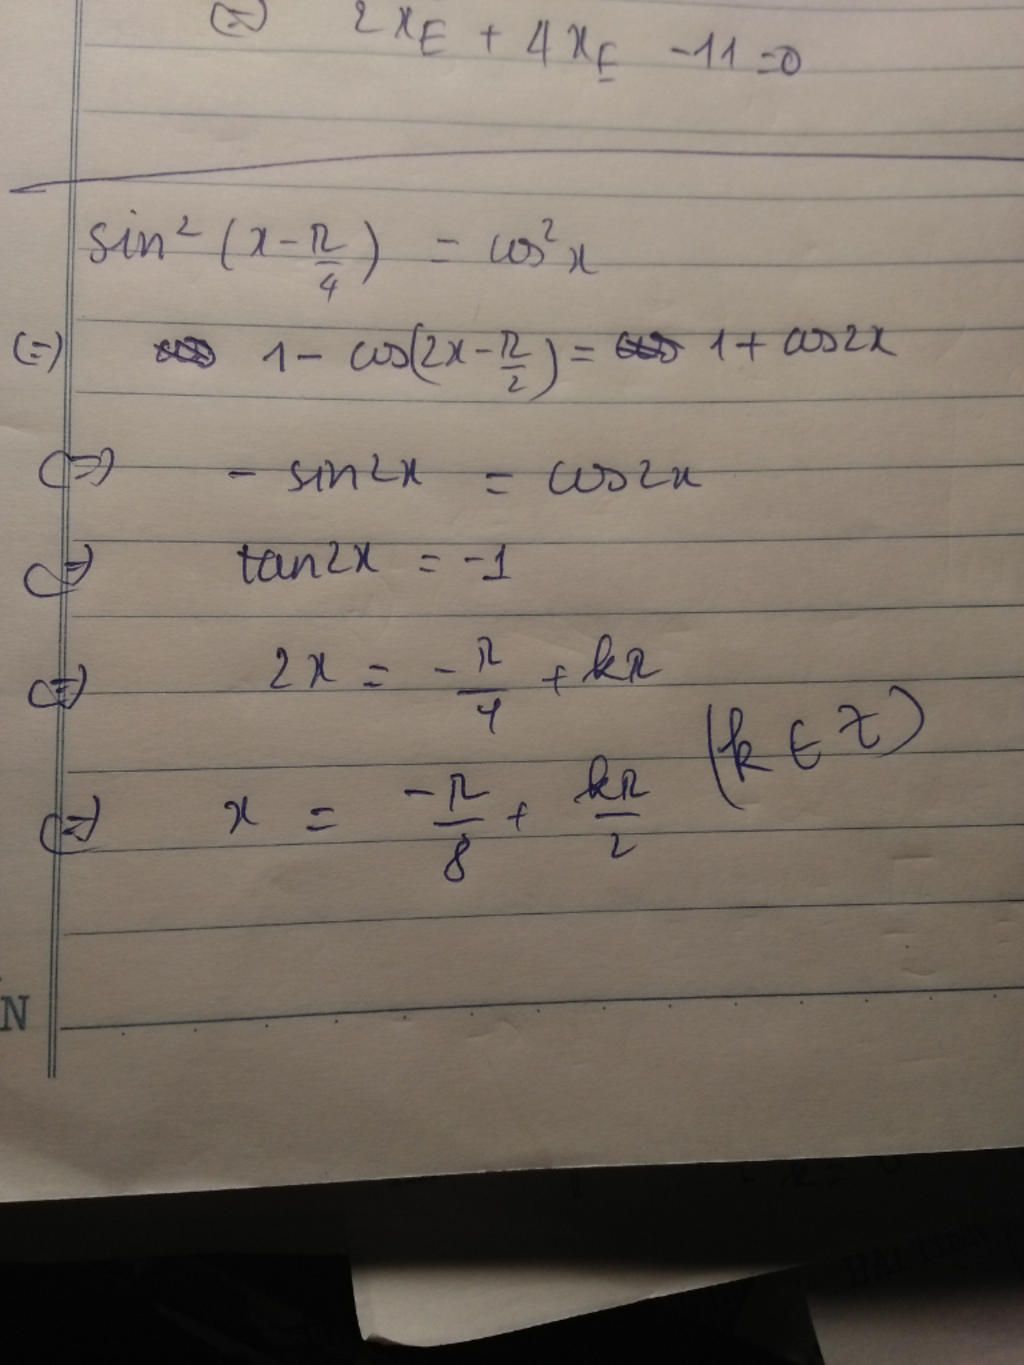 (=) 2x_E + 4x_E -11=0
sin² (x-π/4) = cos²x
(=) 1- cos(2x-π/2) = 1+ cos2x
(=) - sin2x = cos2x
(=) tan2x = -1
(=) 2x = -π/4 + kπ
(k ∈ Z)
(=) x = -π/8 + kπ/2
N
HAI TIEN